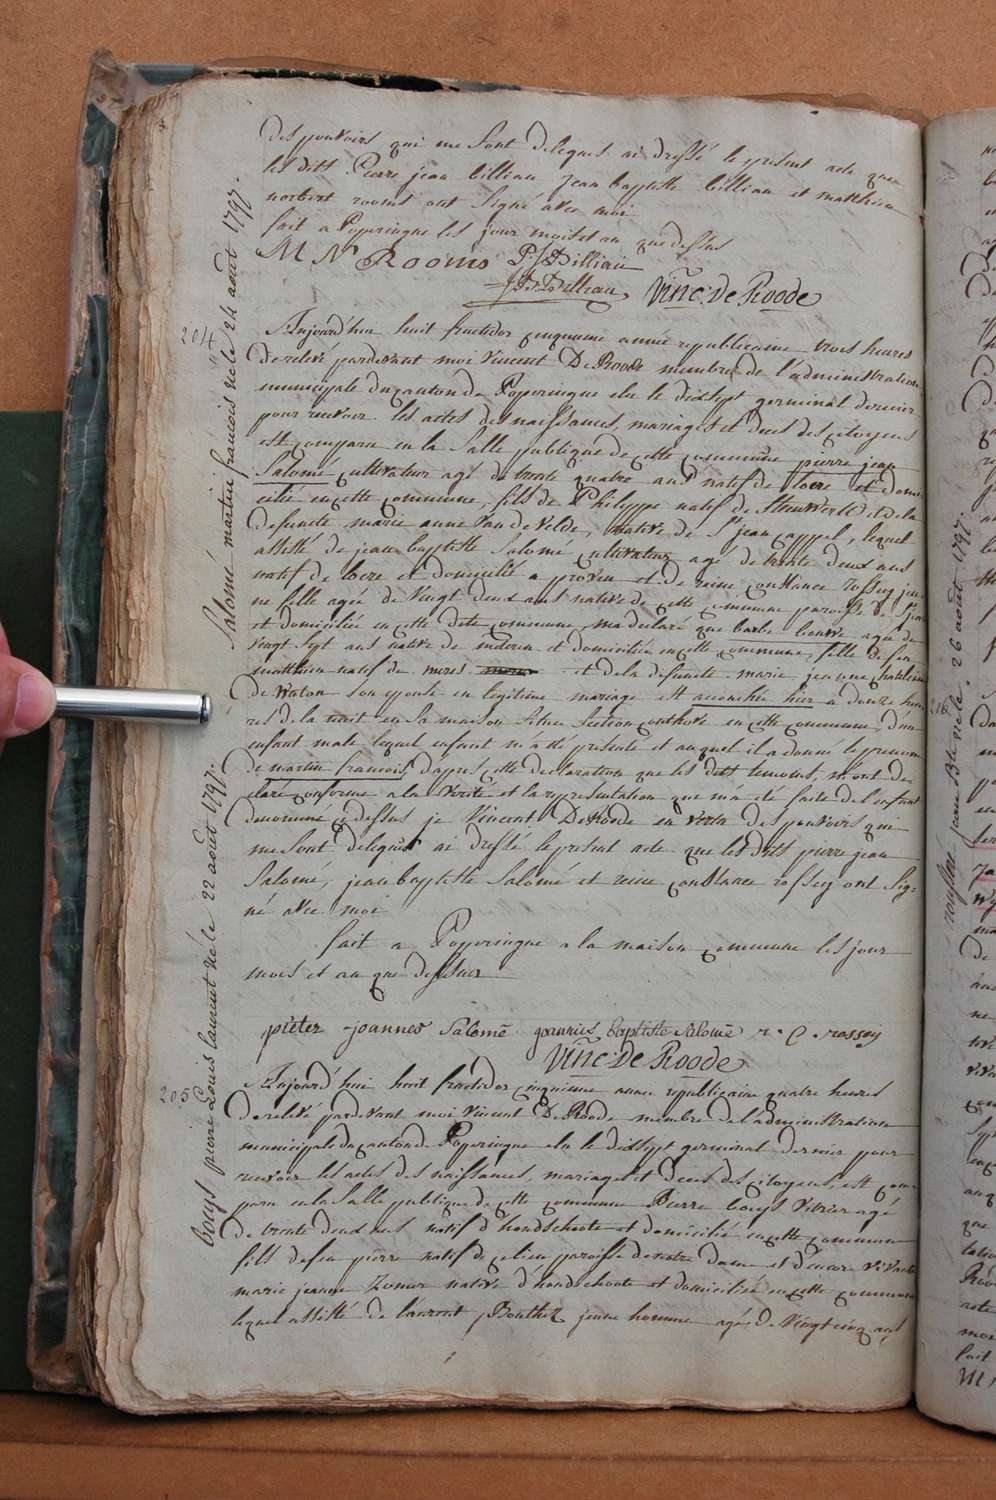 des pouvoirs qui me sont delegués ai dressé le present acte que
les dits Pierre jean billiau jean baptiste billiau et matthieu
norbert rooms ont signé avec moi
fait a Poperingue les jour mois et an que dessus
M N Rooms P J Billiaü
J B Billiau Vinc: De Roode
204
Salomé martin francois né le 24 août 1797.
Aujourd'hui huit fructidor cinquieme année republicaine trois heures
de relevé pardevant moi Vincent De Roode membre de l'administration
municipale du canton de Poperingue elu le dixsept germinal dernier
pour recevoir les actes des naissances, mariages et deces des citoyens
est comparu en la salle publique de cette commune pierre jean
Salomé cultivateur agé de trente quatre ans natif de locre et domi
cilié en cette commune, fils de Philippe natif de Steenwerk et de la
defuncte marie anne Van de Velde, native de St jean cappel, lequel
assisté de jean baptiste Salomé cultivateur agé de trente deux ans
natif de locre et domicilié a proven et de reine constance rossey jeu
ne fille agée de Vingt deux ans native de cette commune paroisse de St jean
et domiciliée en cette dite commune, ma declaré que barbe agée de
Vingt Sept ans native de et domiciliée en cette commune, fille de feu
matthieu natif de et de la defuncte marie jeanne
de Waton son epouse en legitime mariage est accouchée hier a douze heu
res de la nuit en sa maison sise section en cette commune, d'un
enfant male lequel enfant m'a eté presenté et auquel il a donné le prenom
de martin francois, d'après cette declaration que les dits temoins, m'ont de
claré conforme a la verité et la representation que m'a eté faite de l'enfant
denommé ci dessus je Vincent De Roode en vertu des pouvoirs qui
me sont delegués ai dressé le present acte que les dits pierre jean
Salomé, jean baptiste Salomé et reine constance rossey ont sig-
né avec moi
fait a Poperingue a la maison commune les jour
mois et an que dessus
pieter joannes Salomé joannes baptiste Salomé r. C. rossey
Vinc: De Roode
205
bouÿs pierre Louis laurent né le 22 août 1797.
Aujourd'hui huit fructidor cinquieme annee republicaine quatre heures
de relevé pardevant moi Vincent De Roode membre de l'administration
municipale du canton de Poperingue elu le dixsept germinal dernier pour
recevoir les actes des naissances, mariages et deces des citoyens, est com
paru en la salle publique de cette commune Pierre bouÿs Vitrier agé
de trente deux ans natif d'hondschoote et domicilié en cette commune
fils de feu pierre natif de ce lieu paroisse de notre dame et d'encore vivante
marie jeanne native d'hondschoote et domiciliée en cette commune
lequel assisté de laurent jeune homme agé de Vingt cinq ans
rousseré jean Bte né le 26 août 1797.